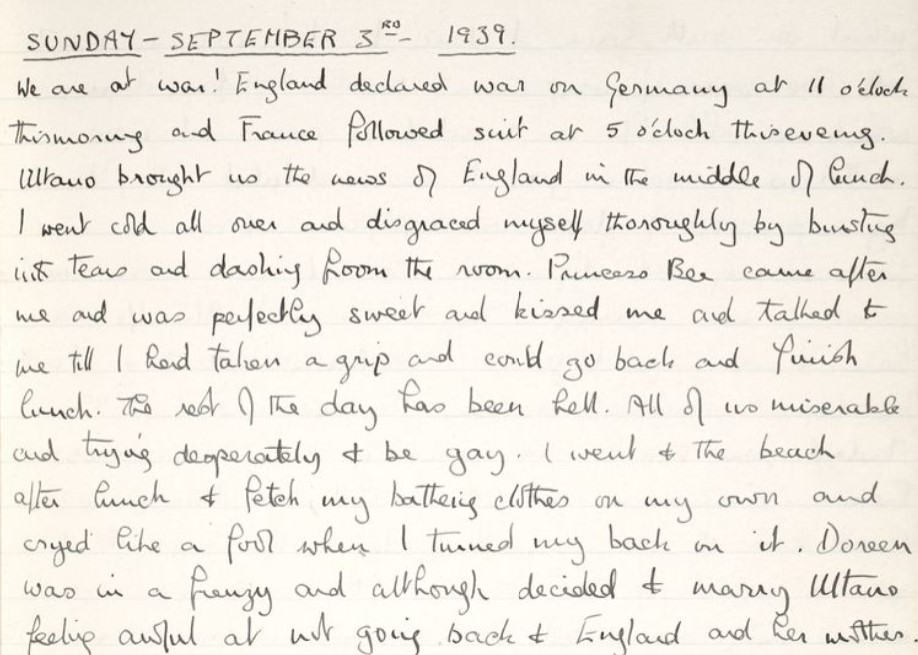 SUNDAY - SEPTEMBER 3RD - 1939.
We are at war! England declared war on Germany at 11 o'clock
thismorning and France followed suit at 5 o'clock thisevening.
Ultano brought us the news of England in the middle of lunch.
I went cold all over and disgraced myself thoroughly by bursting
into tears and dashing from the room. Princess Bee came after
me and was perfectly sweet and kissed me and talked to
me till I had taken a grip and could go back and finish
lunch. The rest of the day has been hell. All of us miserable
and trying desperately to be gay. I went to the beach
after lunch to fetch my bathing clothes on my own and
cryed like a fool when I turned my back on it. Doreen
was in a frenzy and although decided to marry Ultano
feeling awful at not going back to England and her mother.